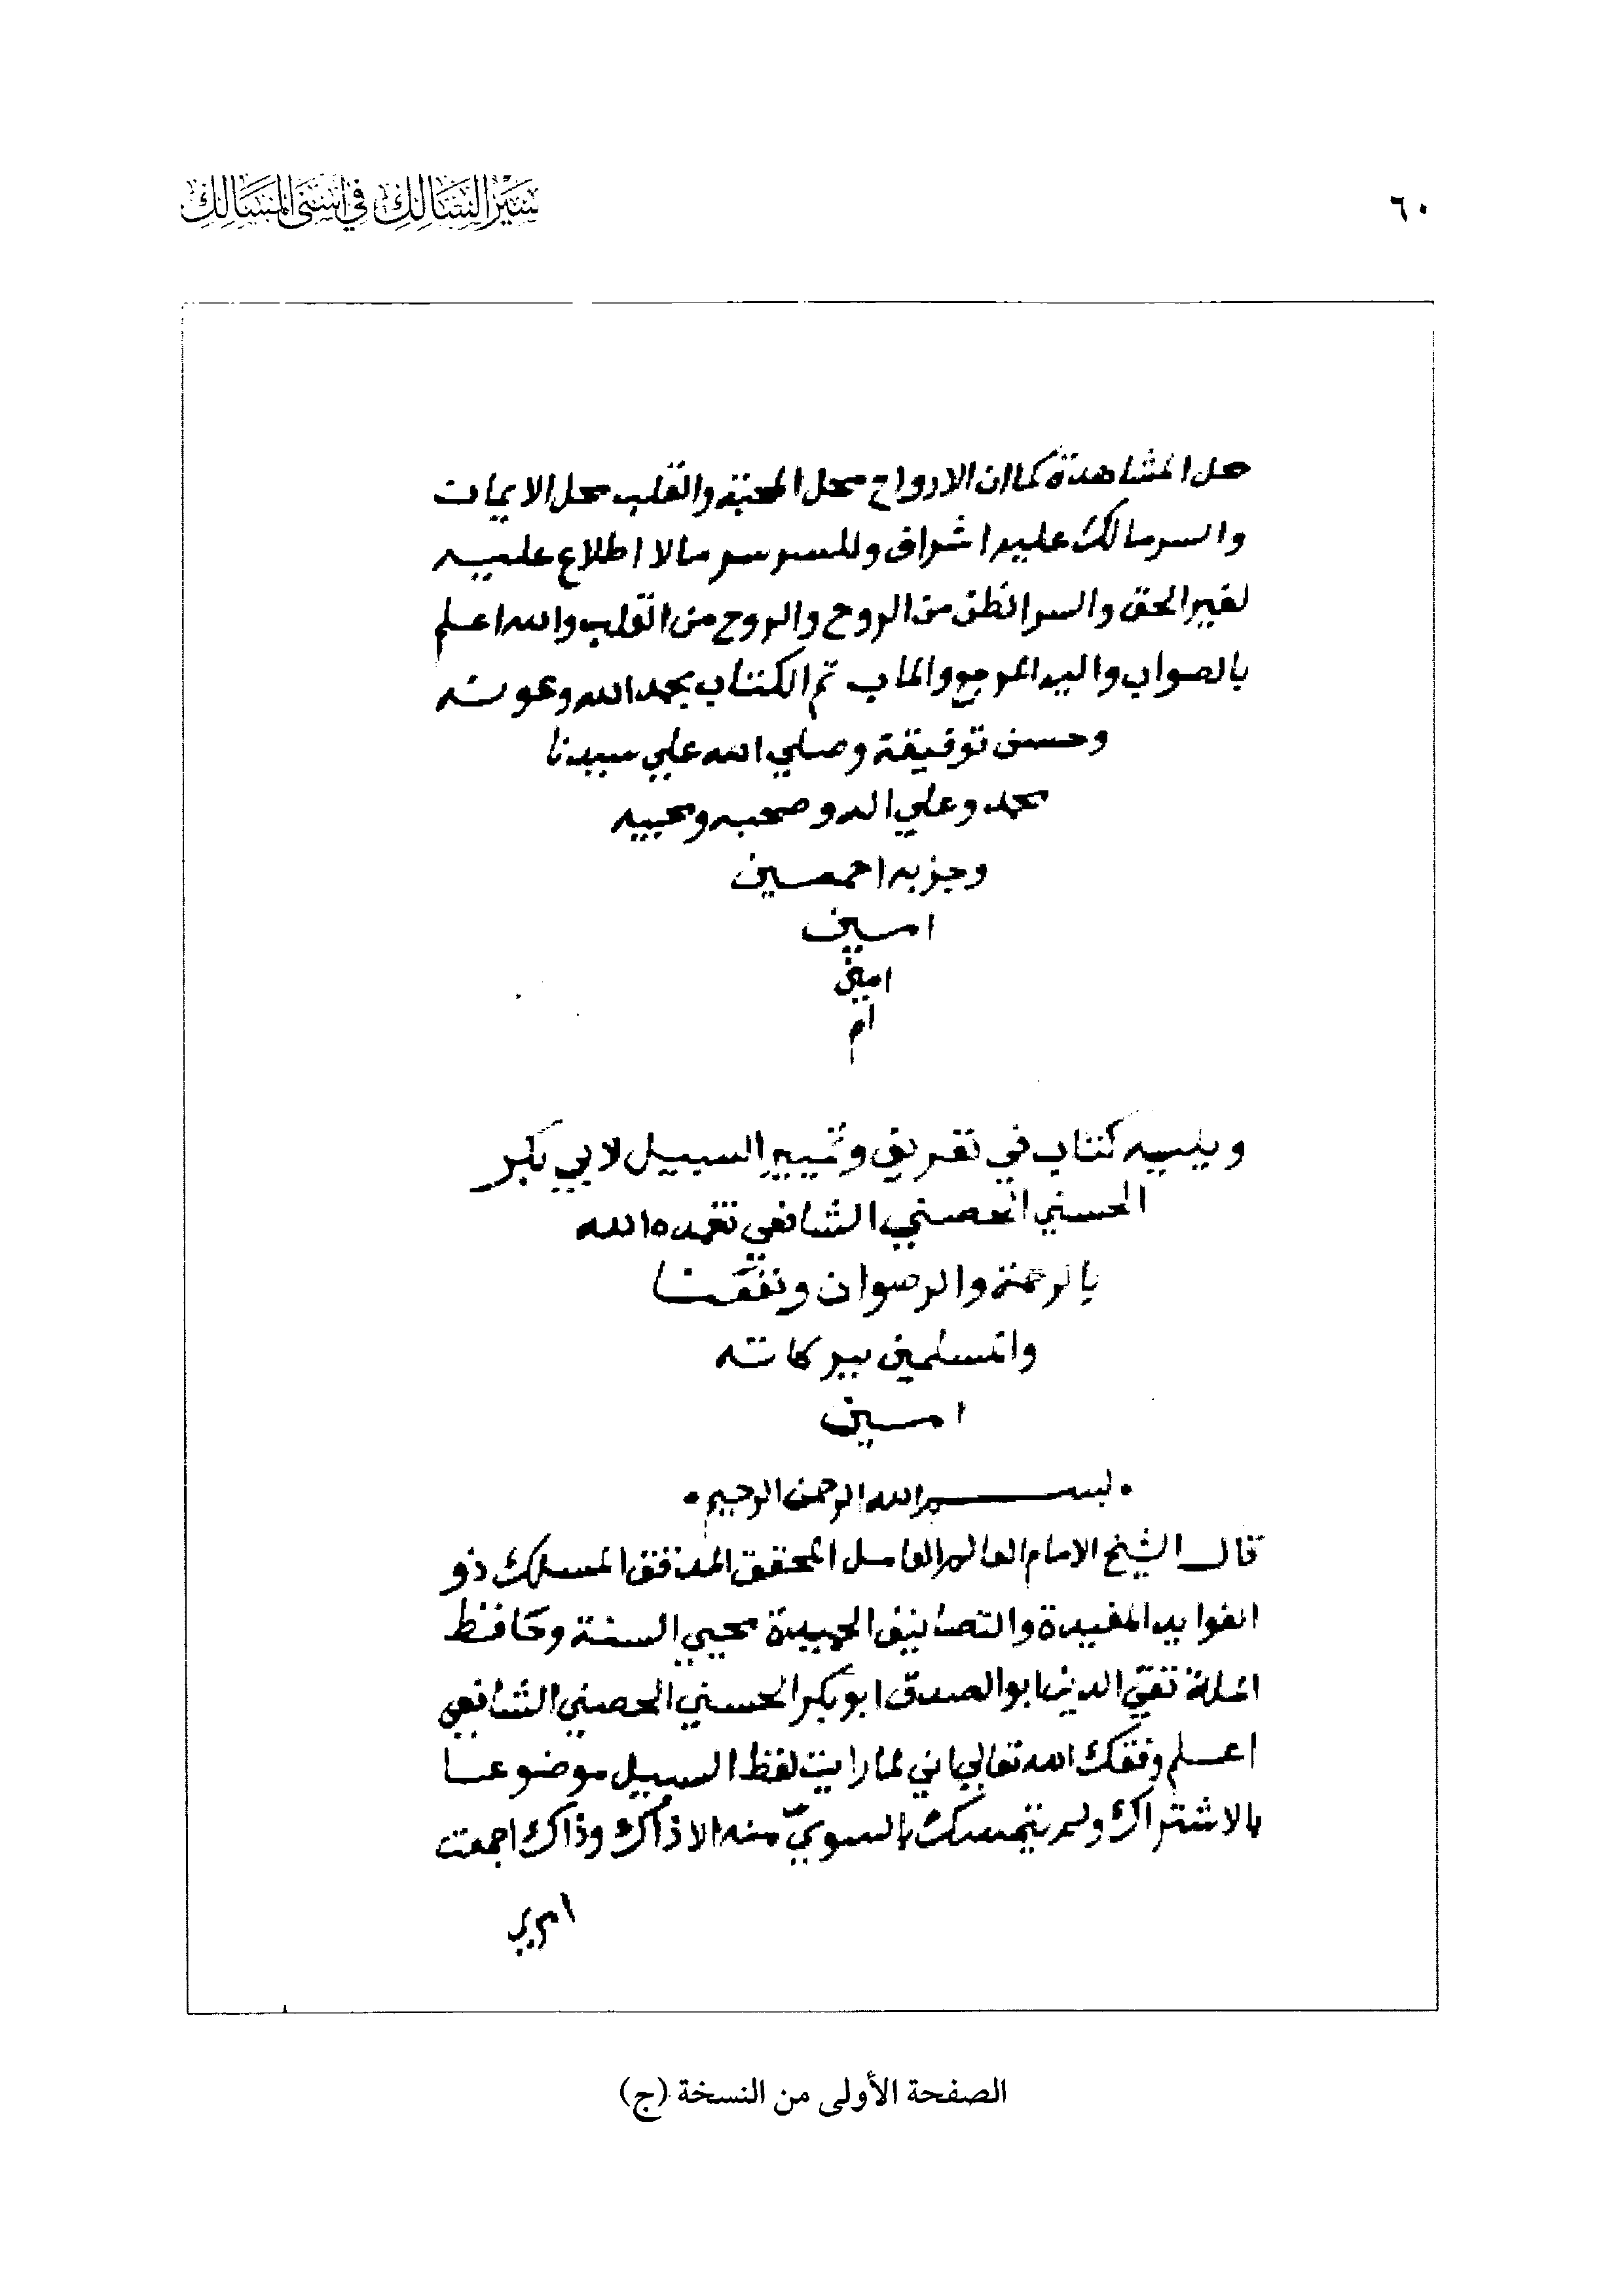 ٦٠
سير السالك في أسنى المسالك
محل المشاهدة كما ان الارواح محل المحبة والقلب محل الايمان
والسر مالك عليه اشراف وللسر سر مالا اطلاع عليه
لغير الحق والسر الطف من الروح والروح من القلب والله اعلم
بالصواب واليه المرجع والماب تم الكتاب بحمد الله وعونه
وحسن توفيقة وصلي الله علي سيدنا
محمد وعلي اله وصحبه ومحبيه
وحزبه اجمعين
امين
امين
ام
ويليه كتاب في تعريف وتمييز السبيل لابي بكر
الحسني الحصني الشافعي تغمده الله
بالرحمة والرضوان ونفعنا
والمسلمين ببركاته
امين
بسم الله الرحمن الرحيم
قال الشيخ الامام العالم العامل المحقق المدقق المسلك ذو
الفوايد المفيدة والتصانيف الحميدة محيي السنة وحافظ
الملة تقي الدين ابو الصدق ابو بكر الحسني الحصني الشافعي
اعلم وفقك الله تعالي اني لما رايت لفظ السبيل موضوعا
بالاشتراك ولم يتمسك بالسويّ منه الا ذاك وذاك اجمعت
الصفحة الأولى من النسخة (ج)